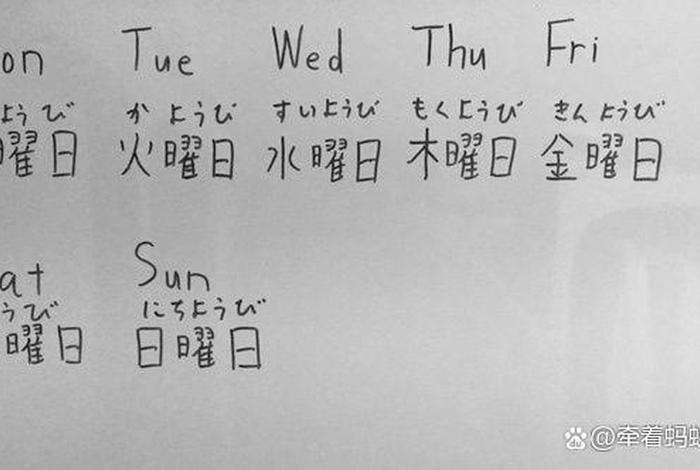 on Tue Wed Thu Fri
ようび かようび すいようび もくようび きんようび
曜日 火曜日 水曜日 木曜日 金曜日
at Sun
うび にちようび
曜日 日曜日
@牵着蚂